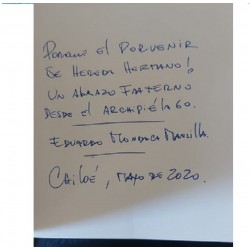 Porque el Porvenir
se hereda Hermano!
Un abrazo fraterno
desde el archipiélago.
Eduardo Mondaca Mansilla.
Chiloé, mayo de 2020.